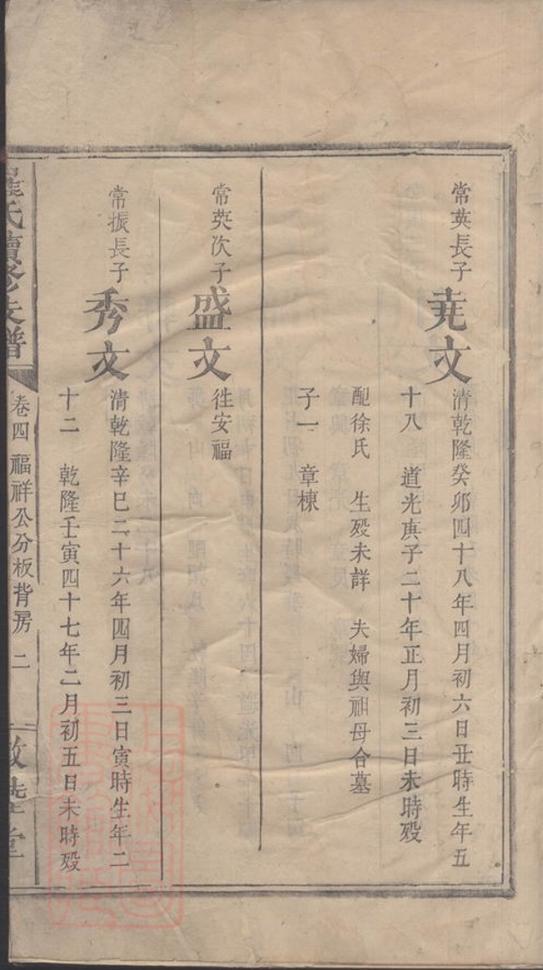 常英長子
尭文
清乾隆癸卯四十八年四月初六日丑時生年五
十八　道光庚子二十年正月初三日未時殁
配徐氏　生殁未詳　夫婦與祖母合墓
子一　章棟
常英次子
盛文
徃安福
常振長子
秀文
清乾隆辛巳二十六年四月初三日寅時生年二
十二　乾隆壬寅四十七年二月初五日未時殁
氏續修支譜
卷四　福祥公分板背房　二
堂